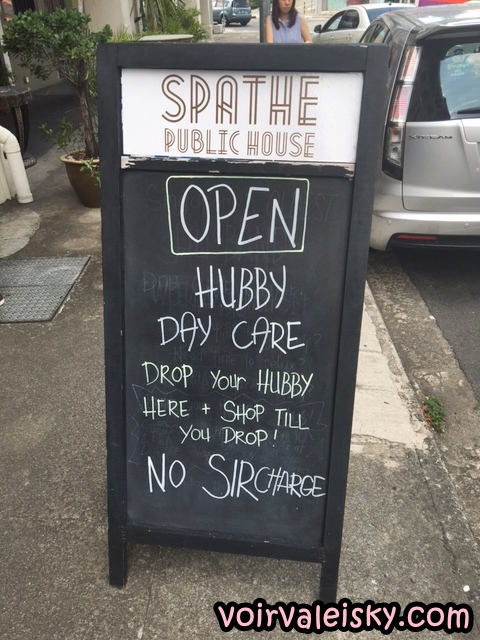 SPATHE
PUBLIC HOUSE
OPEN
HUBBY
DAY CARE
DROP YOUR HUBBY
HERE + SHOP TILL
YOU DROP!
NO SIRCHARGE
STREAM
voirvaleisky.com